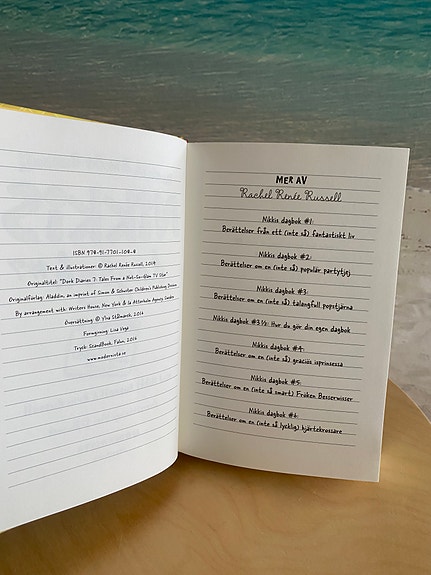 ISBN 978-91-7701-108-8
Text & illustrationer: © Rachel Renée Russell, 2014
Originaltitel: "Dork Diaries 7: Tales From a Not-So-Glam TV Star"
Originalförlag: Aladdin, an imprint of Simon & Schuster Children's Publishing Division
By arrangement with: Writers House, New York & Ia Atterholm Agency, Sweden
Översättning: © Ylva Stålmarck, 2016
Formgivning: Lisa Vega
Tryck: ScandBook, Falun, 2016
www.modernista.se
MER AV
Rachel Renée Russell
Nikkis dagbok #1:
Berättelser från ett (inte så) fantastiskt liv
Nikkis dagbok #2:
Berättelser om en (inte så) populär partytjej
Nikkis dagbok #3:
Berättelser om en (inte så) talangfull popstjärna
Nikkis dagbok #3½: Hur du gör din egen dagbok
Nikkis dagbok #4:
Berättelser om en (inte så) graciös isprinsessa
Nikkis dagbok #5:
Berättelser om en (inte så smart) Fröken Besserwisser
Nikkis dagbok #6:
Berättelser om en (inte så lycklig) hjärtekrossare